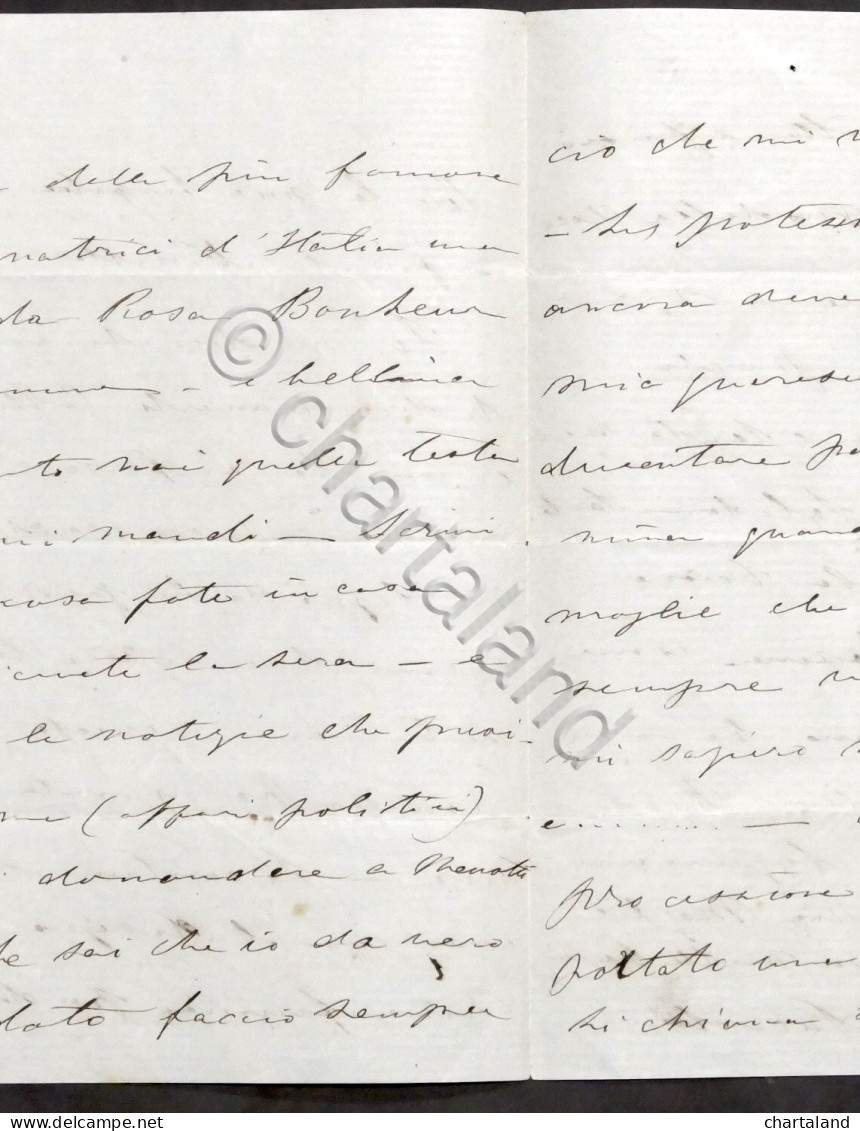 delle più famose
natrici d'Italia una
da Rosa Bonheur
- e bellina
to mai quella testa
mi mandi - Scrivi
cosa fate in casa
la sera - e
le notizie che puoi
me (affari politici)
domandere a Menotti
sai che io da vero
dato faccio sempre
ciò che mi
potessi
ancora
mia
diventare
quand
moglie che
sempre
mi sapere
e......... -
processione
portato una
si chiama
© chartaland
chartaland